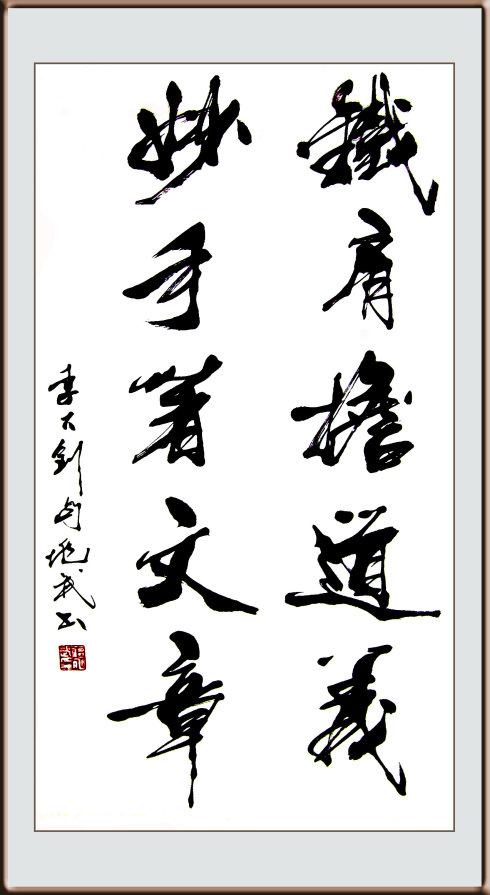 鐵肩擔道義
妙手著文章
李大釗句
武书